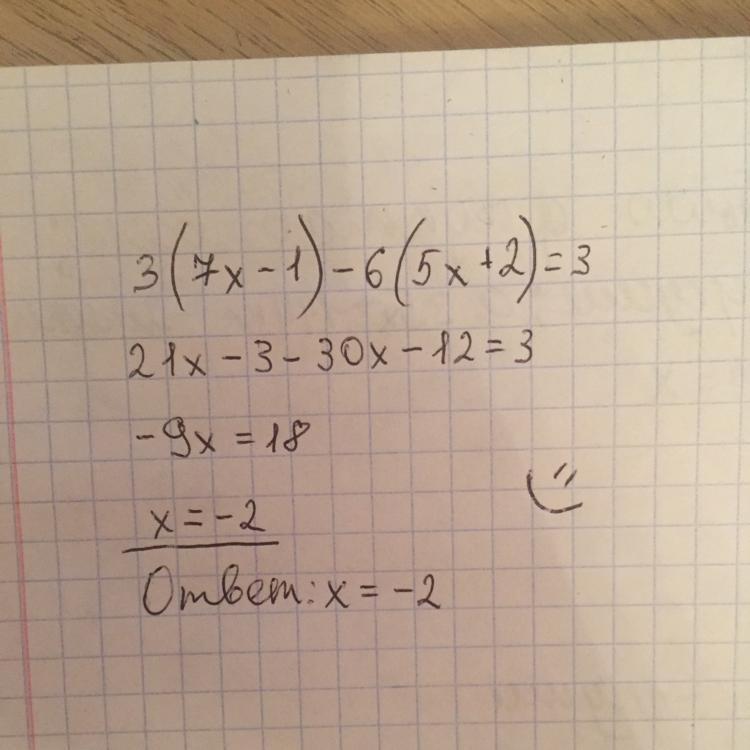 3(7x-1)-6(5x+2)=3
21x-3-30x-12=3
-9x=18
x=-2
Ответ: x=-2